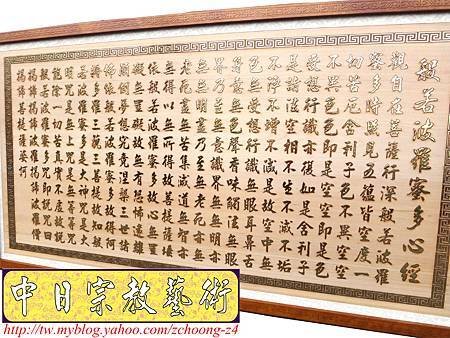 般若波羅蜜多心經
觀自在菩薩行深般若波羅
蜜多時照見五蘊皆空度一
切苦厄舍利子色不異空空
不異色色即是空空即是色
受想行識亦復如是舍利子
是諸法空相不生不滅不垢
不淨不增不減是故空中無
色無受想行識無眼耳鼻舌
身意無色聲香味觸法無眼
界乃至無意識界無無明亦
無無明盡乃至無老死亦無
老死盡無苦集滅道無智亦
無得以無所得故菩提薩埵
依般若波羅蜜多故心無罣
礙無罣礙故無有恐怖遠離
顛倒夢想究竟涅槃三世諸
佛依般若波羅蜜多故得阿
耨多羅三藐三菩提故知般
若波羅蜜多是大神咒是大
明咒是無上咒是無等等咒
能除一切苦真實不虛故說
般若波羅蜜多咒即說咒曰
揭諦揭諦波羅揭諦波羅僧
揭諦菩提薩婆訶
中日宗教藝術
http://tw.myblog.yahoo.com/zchoong-z4